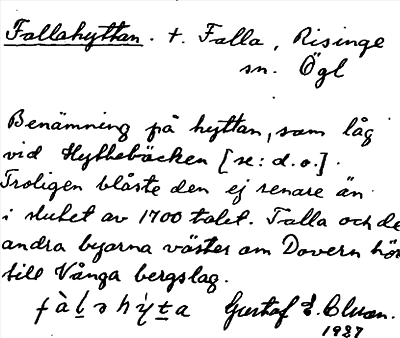 Fallahyttan. t. Falla, Risinge
sn. Ögl
Benämning på hyttan, som låg
vid Hyttebäcken [se: d.o.].
Troligen blåste den ej senare än
i slutet av 1700 talet. Falla och de
andra byarna väster om Dovern hör
till Vånga bergslag.
fàḻəhẏṯa Gustaf E.
1927